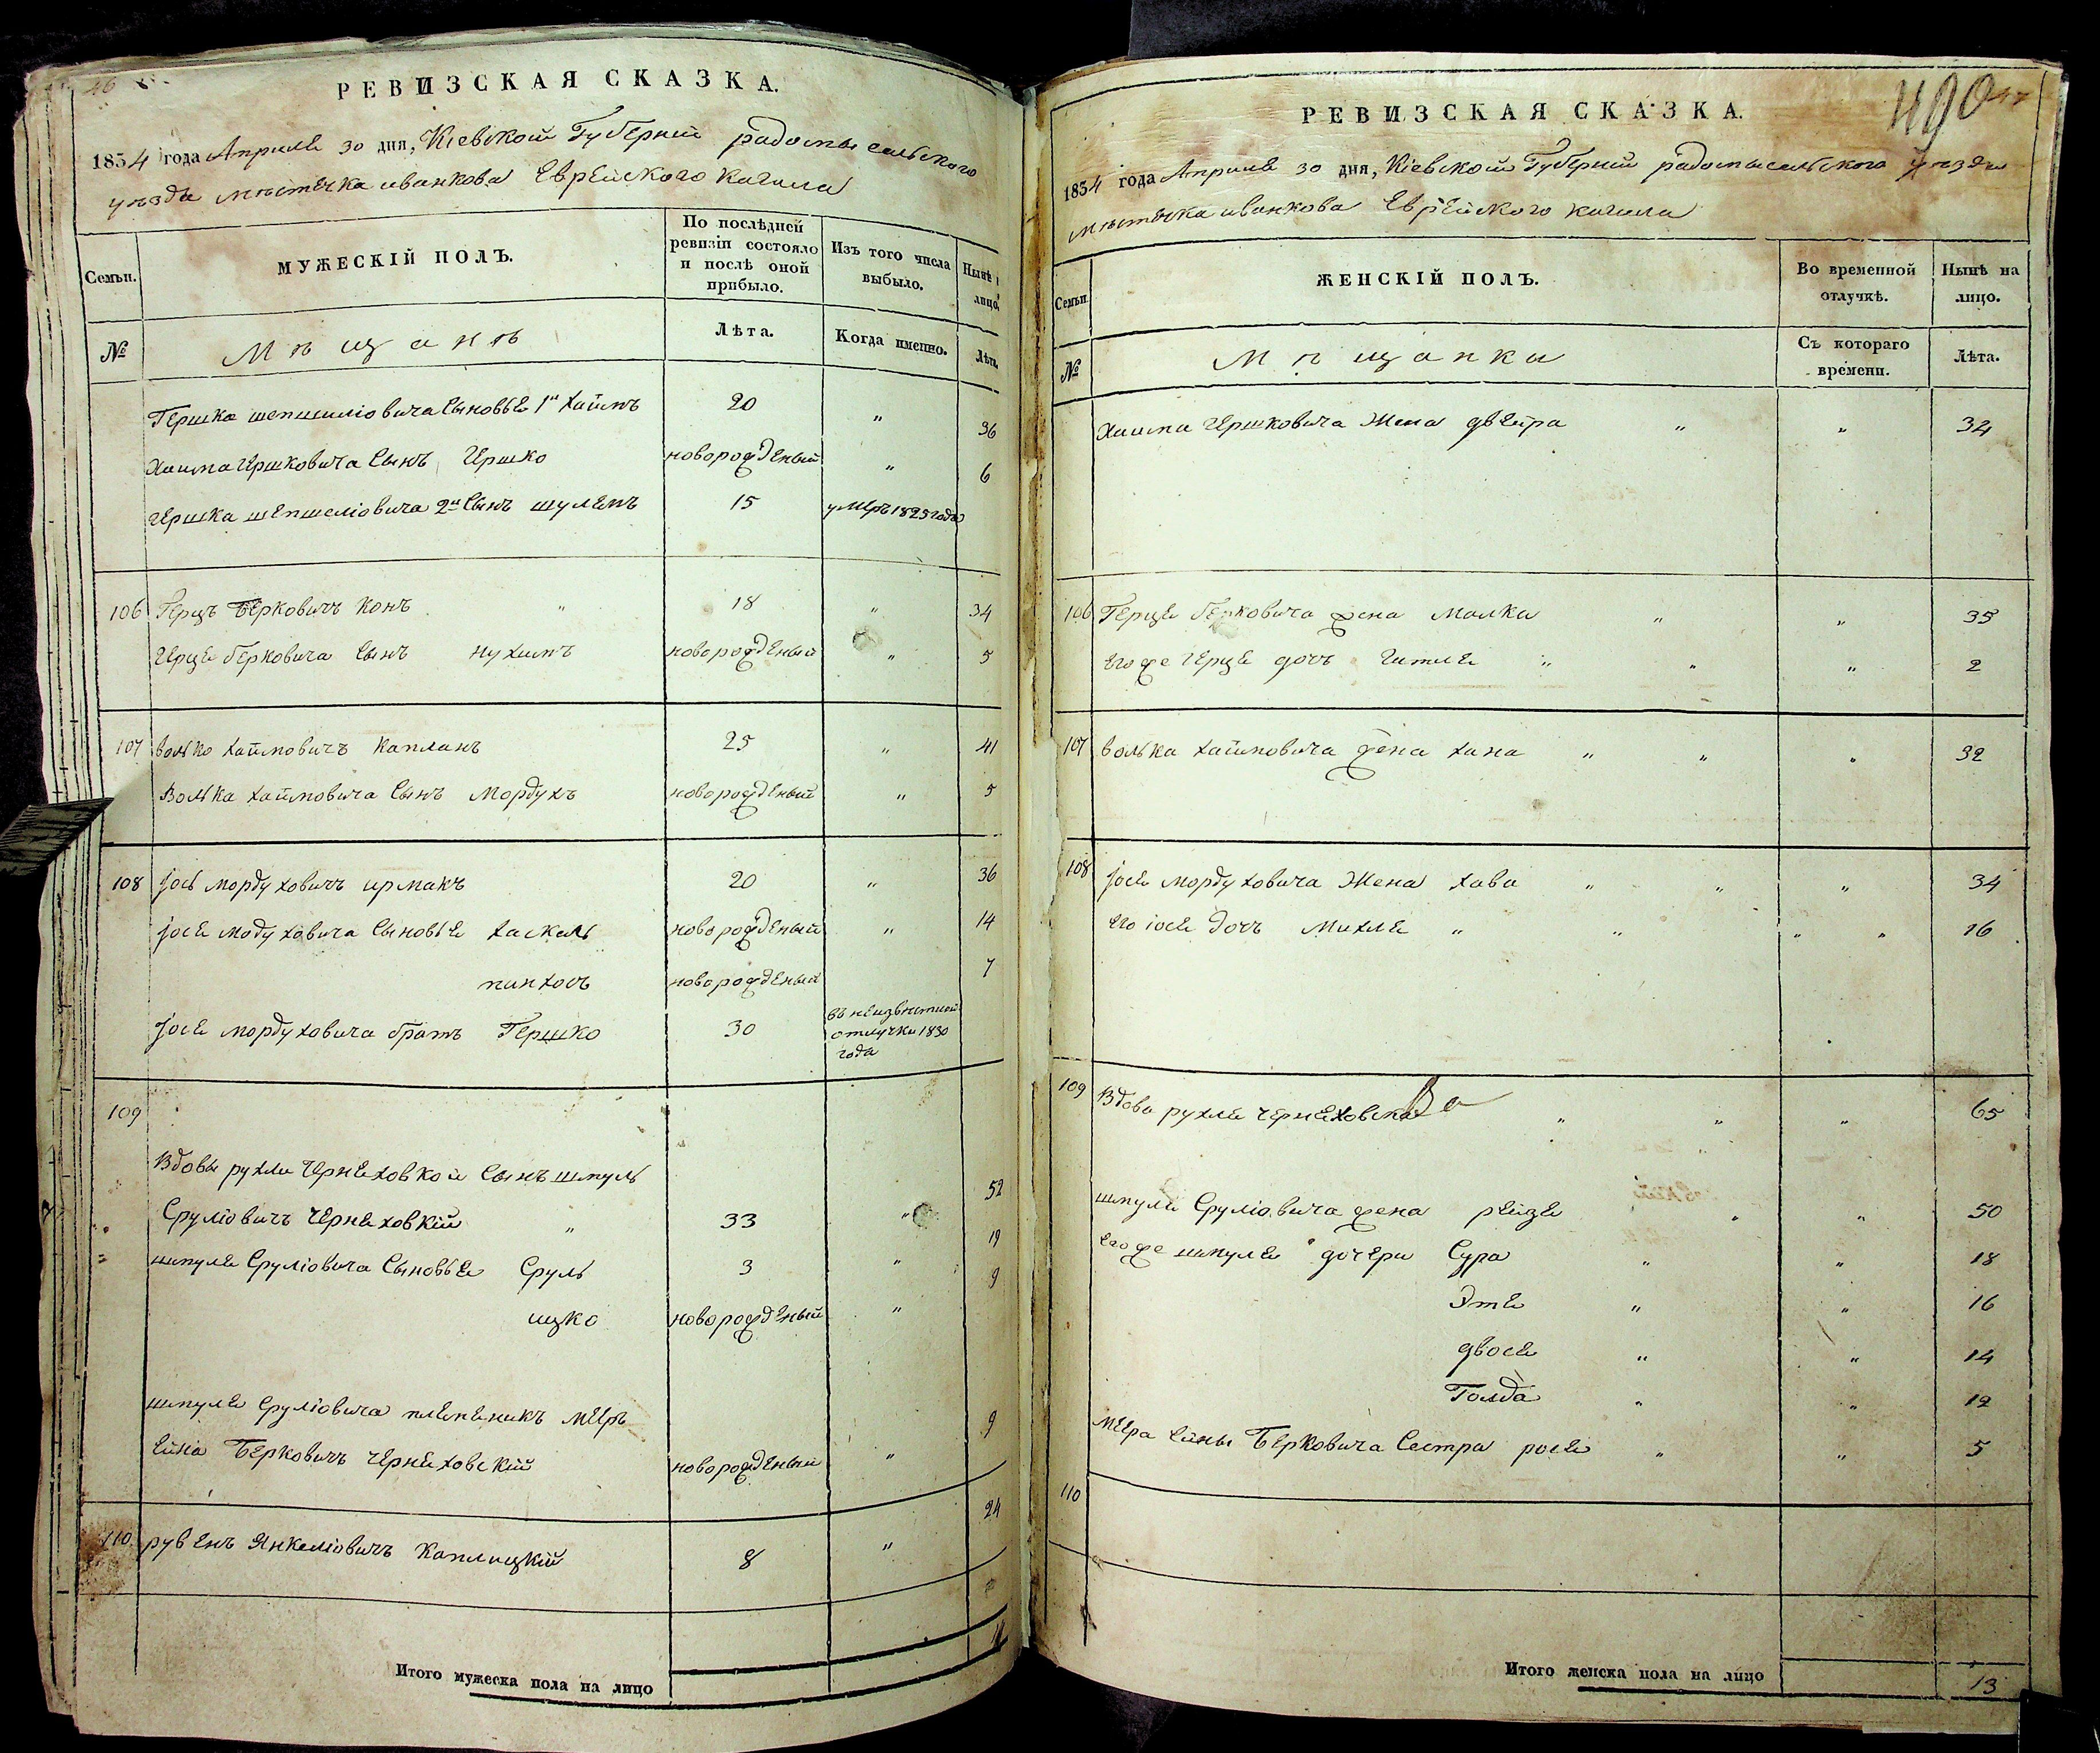 РЕВИЗСКАЯ СКАЗКА.
1834 года Апреля 30 дня, Кіевской Губерніи радомысельского
уѣзда мѣстечка иванкова Еврейского кагала
Семьи.
МУЖЕСКІЙ ПОЛЪ.
По послѣдней ревизіи состояло и послѣ оной прибыло.
Изъ того числа выбыло.
Нынѣ лицо.
№
Мѣщанѣ
Лѣта.
Когда именно.
Лѣта.
Гершка шепшиліовича Сыновье 1й хаимъ 20 " 36
Хаима гершковича Сынъ гершко новорожденый " 6
гершка шепшеліовича 2й Сынъ шулемъ 15 умеръ 1825 года
106 Герцъ Берковичъ конъ " 18 " 34
герце берковича Сынъ нухимъ новорожденый " 5
107 волько хаимовичъ капланъ 25 " 41
Волька хаимовича Сынъ Мордухъ новорожденый " 5
108 іось мордуховичъ ирмакъ 20 " 36
іосе модуховича Сыновье хаскаль новорожденый " 14
пинхосъ новорожденый 7
іосе мордуховича братъ Гершко 30 въ неизвѣстной отлучки 1830 года
109
Вдовы рухли Чернеховкой Сынъ шмуль
Сруліовичъ Чернеховкій " 33 " 52
шмуле Сруліовича Сыновье Сруль 3 " 19
ицко новорожденый " 9
шмуле Сруліовича племеникъ мееръ
ейна Берковичъ чернеховскій новорожденый " 9
110 рувенъ Янкеліовичъ Каплицкій 8 " 24
Итого мужеска пола на лицо
РЕВИЗСКАЯ СКАЗКА.
490
1834 года Апреля 30 дня, Кіевской Губерніи радомысельского уѣзда
мѣстечка иванкова Еврейского кагала
Семьи.
ЖЕНСКІЙ ПОЛЪ.
Во временной отлучкѣ.
Нынѣ на лицо.
№
Мѣщанки
Съ котораго времени.
Лѣта.
Хаима гершковича Жена двейра " " 34
106 Герце берковича жена Малка " " 35
его же герце дочъ гитле " " " 2
107 волька хаимовича жена хана " " " 32
108 іосе мордуховича Жена хава " " " 34
его іосе дочъ Михле " " " " 16
109 Вдова рухле чернеховска " " " 65
шмуле Сруліовича жена рейзе " " 50
его же шмуле дочери Сура " " 18
Эте " " 16
двосе " " 14
Голда " " 12
меера ейны Берковича Сестра росе " " 5
110
Итого женска пола на лицо 13